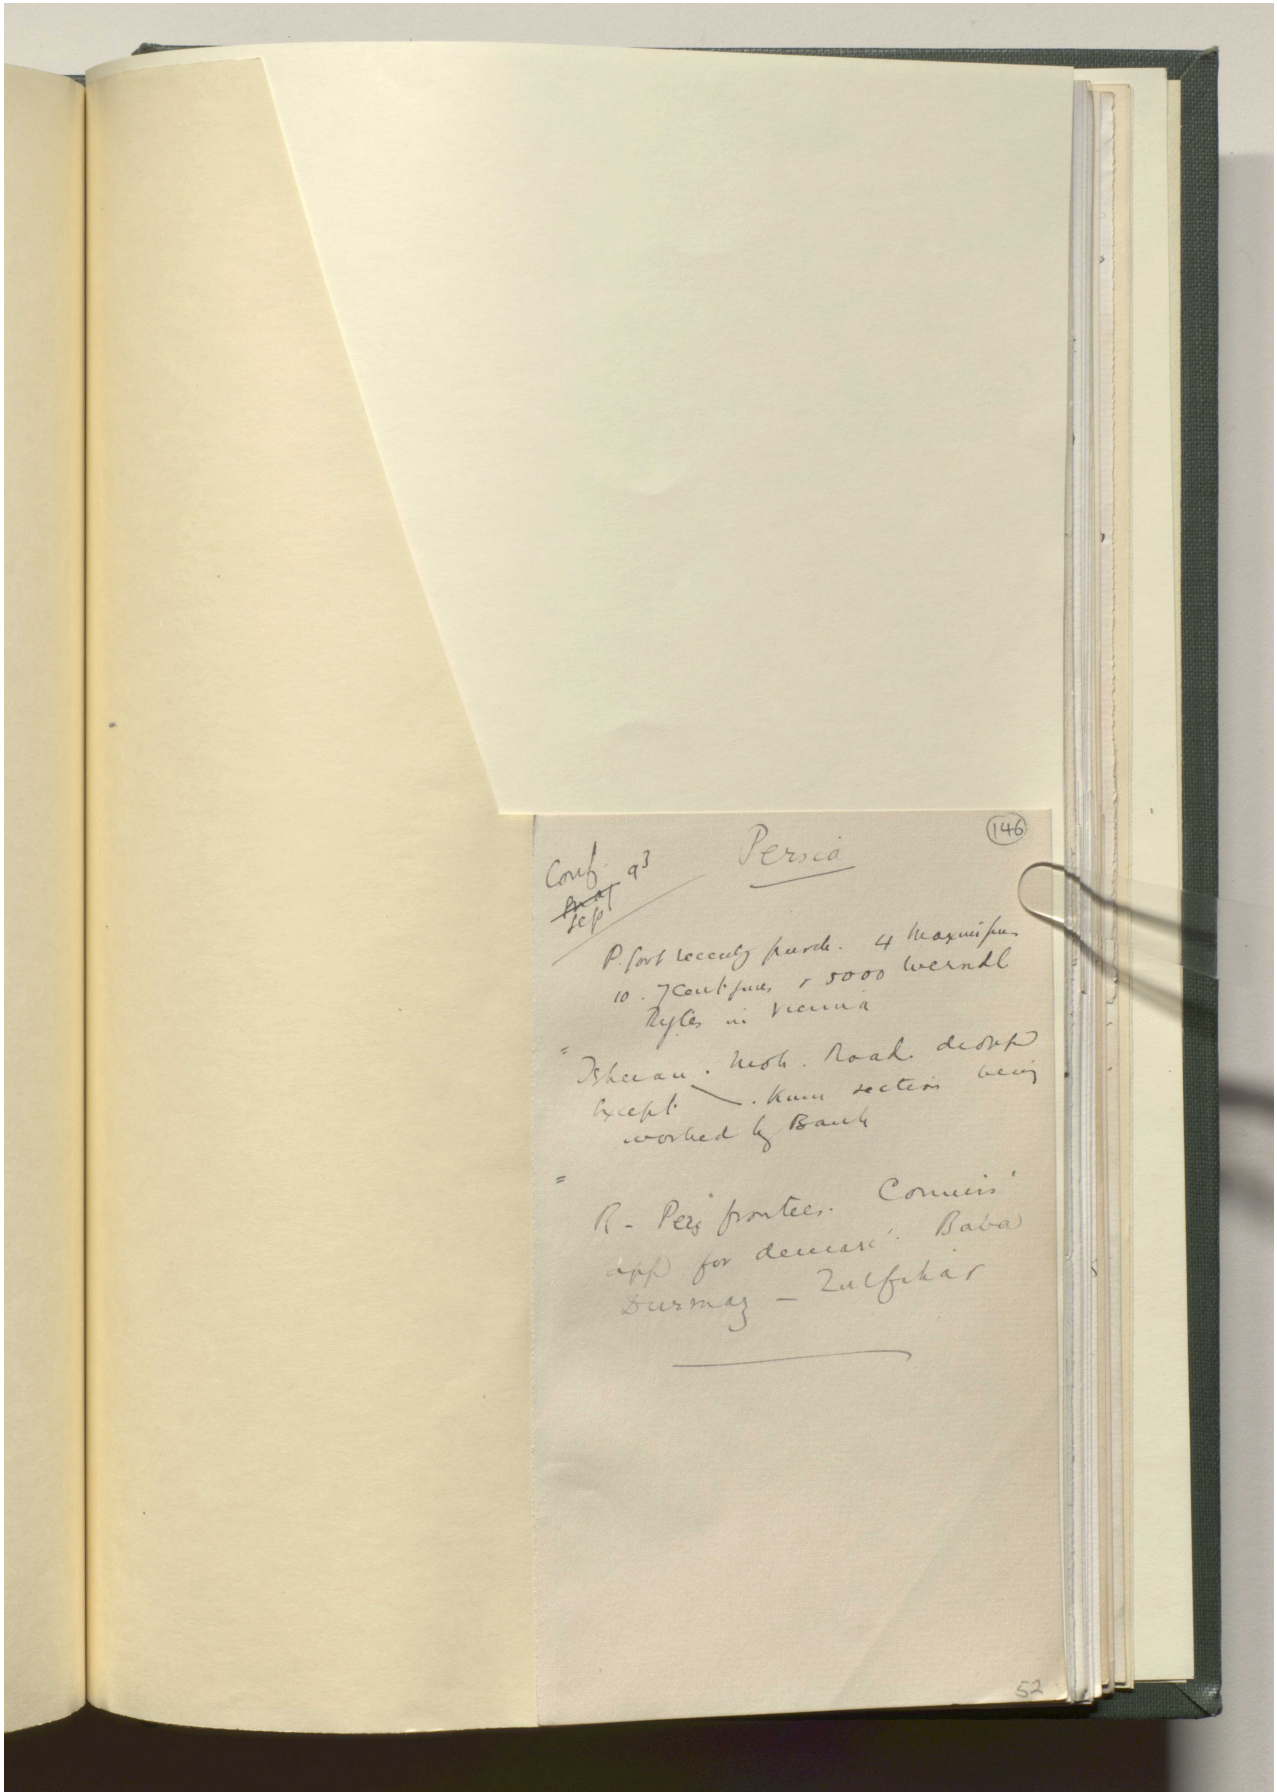 146
Persia
Conf. 93
Sep
P. Govt recently purch. 4 Maxim guns
10 . 7 Cent. guns & 5000 Werndl
Rifles in Vienna
" Teheran . Moh . Road dropp
except . Kum section being
worked by Bank
"
R - Pers frontier. Commis
app for demarc. Baba
Durmaz - Zulfikar
52